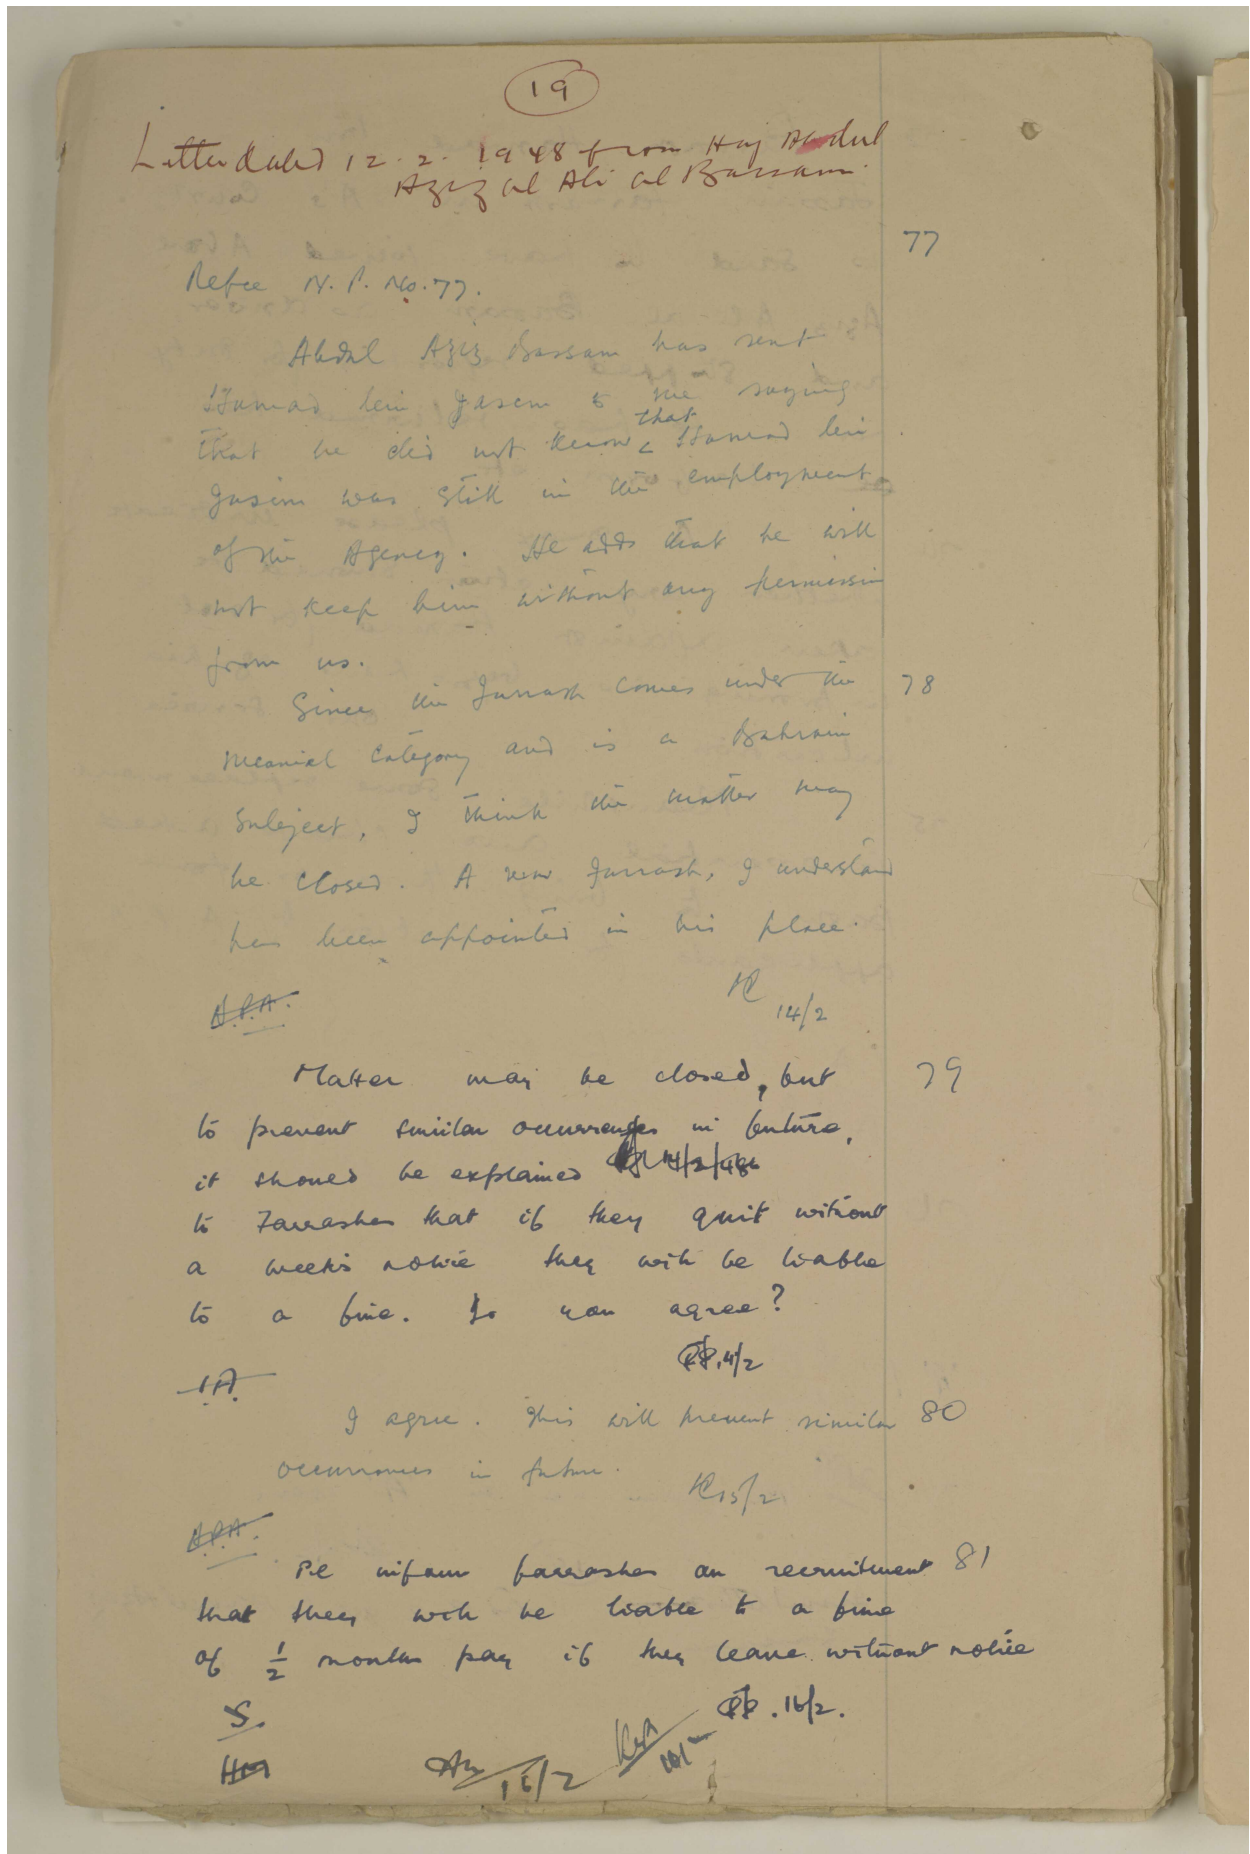 19
Letter dated 12.2.1948 from Haj Abdul
Aziz al Ali al Bassam.
77
Refce N.P. No. 77.
Abdul Aziz Bassam has sent
Hamad bin Jasem to me saying
that he did not know that Hamad bin
Jasim was still in the employment
of the Agency. He adds that he will
not keep him without any permission
from us.
Since the Farrash comes under the 78
menial category and is a Bahrain
subject, I think the matter may
be closed. A new Farrash, I understand
has been appointed in his place.
14/2
A.P.A.
Matter may be closed, but 79
to prevent similar occurrences in future,
it should be explained 14/2/48
to Farrashes that if they quit without
a week's notice they will be liable
to a fine. Do you agree?
14/2
I.A.
I agree. This will prevent similar 80
occurrences in future.
15/2
A.P.A.
Pl inform farrashes on recruitment 81
that they will be liable to a fine
of 1/2 months pay if they leave without notice
16/2.
S.
HM
16/2